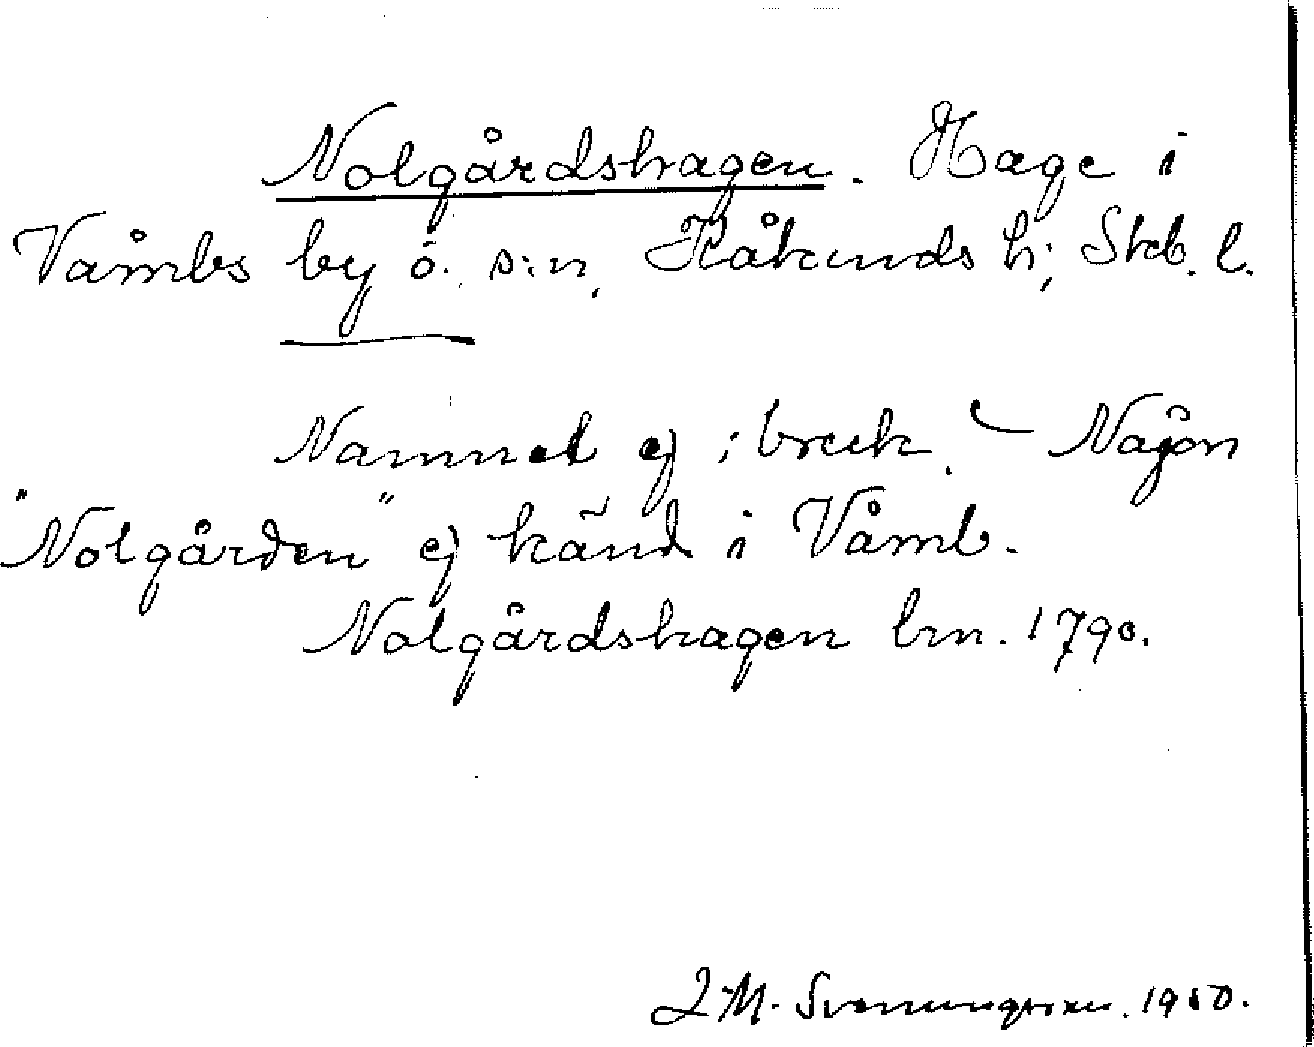 Nolgårdshagen. Hage i
Våmbs by o. s:n, Kåkinds h:, Skb. l.
Namnet ej i bruk. – Någon
"Nolgården" ej känd i Våmb.
Nolgårdshagen lm. 1790.
L-M. Svenungsson. 1950.